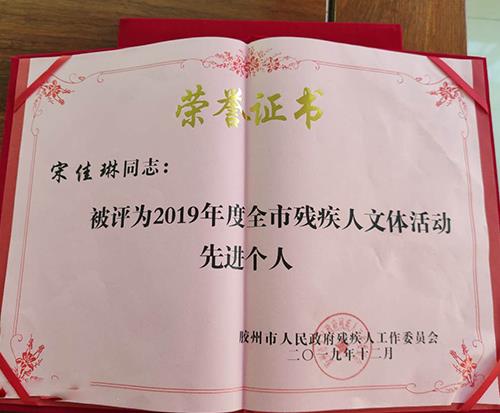 荣誉证书
宋佳琳同志：
被评为2019年度全市残疾人文体活动
先进个人
胶州市人民政府残疾人工作委员会
二〇一九年十二月